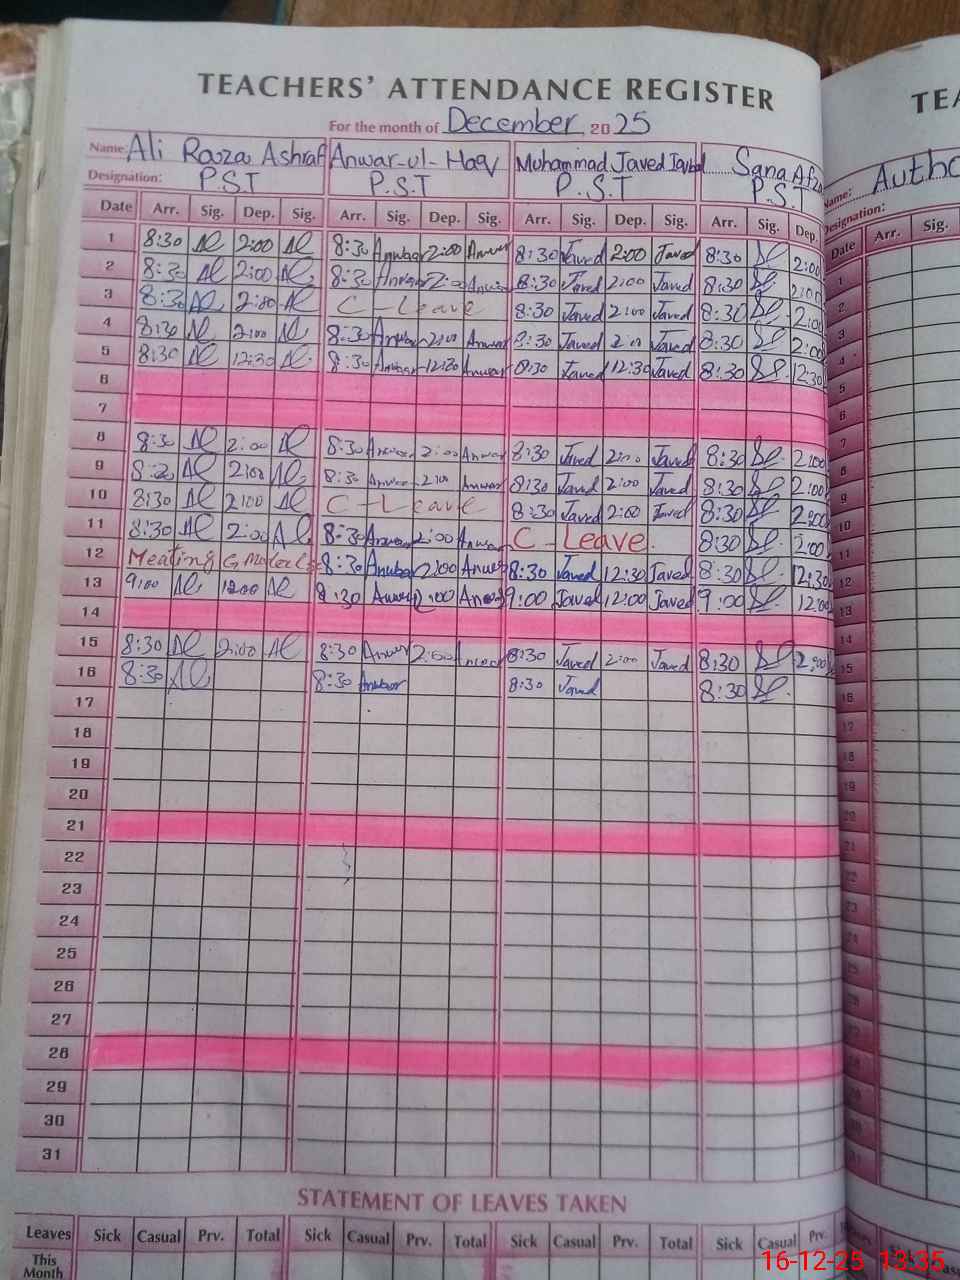 TEACHERS' ATTENDANCE REGISTER
For the month of December 2025
Name: Ali Raza Ashraf Anwar-ul-Haq Muhammad Javed Iqbal Sana
Designation: P.S.T P.S.T P.S.T P.S.T
Date Arr. Sig. Dep. Sig. Arr. Sig. Dep. Sig. Arr. Sig. Dep. Sig. Arr. Sig. Dep.
1 8:30 2:00 8:30 Anwar 2:00 Anwar 8:30 Javed 2:00 Javed 8:30 2:00
2 8:30 2:00 8:30 Anwar 2:00 Anwar 8:30 Javed 2:00 Javed 8:30 2:00
3 8:30 2:00 C-Leave 8:30 Javed 2:00 Javed 8:30 2:00
4 8:30 2:00 8:30 Anwar 2:00 Anwar 8:30 Javed 2:00 Javed 8:30 2:00
5 8:30 12:30 8:30 Anwar 12:30 Anwar 8:30 Javed 12:30 Javed 8:30 12:30
6
7
8 8:30 2:00 8:30 Anwar 2:00 Anwar 8:30 Javed 2:00 Javed 8:30 2:00
9 8:30 2:00 8:30 Anwar 2:00 Anwar 8:30 Javed 2:00 Javed 8:30 2:00
10 8:30 2:00 C-Leave 8:30 Javed 2:00 Javed 8:30 2:00
11 8:30 2:00 8:30 Anwar 2:00 Anwar C-Leave. 8:30 2:00
12 Meating 8:30 Anwar 2:00 Anwar 8:30 Javed 12:30 Javed 8:30 12:30
13 9:00 12:00 8:30 Anwar 2:00 Anwar 9:00 Javed 12:00 Javed 9:00 12:00
14
15 8:30 2:00 8:30 Anwar 2:00 Anwar 8:30 Javed 2:00 Javed 8:30 2:00
16 8:30 8:30 Anwar 8:30 Javed 8:30
17
18
19
20
21
22
23
24
25
26
27
28
29
30
31
STATEMENT OF LEAVES TAKEN
Leaves Sick Casual Prv. Total Sick Casual Prv. Total Sick Casual Prv. Total Sick Casual Prv.
This Month
TEA
Name: Autho
Designation:
Date Arr. Sig.
1
2
3
4
5
6
7
8
9
10
11
12
13
14
15
16
17
18
19
20
21
16-12-25 13:35